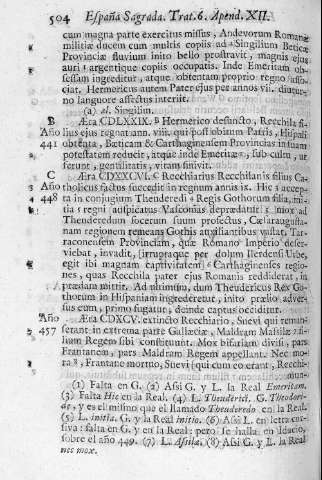 504 España Sagrada. Trat. 6. Apend. XII.
cum magna parte exercitus missus, Andevorum Romanæ
militiæ ducem cum multis copiis ad Singilium Beticæ
Provinciæ fluvium inito bello prostravit, magnis ejus
auri argentique copiis occupatis. Inde Emeritam ob-
sessam ingreditur, atque obtentam proprio regno asso-
ciat. Hermericus autem Pater ejus per annos vii. diutur-
no languore affectus interiit.
(a) al. Singilim.
B Æra CDLXXIX. Hermerico defuncto, Recchila fi-
Año lius ejus regnat ann. viii. qui post obitum Patris, Hispali
441 obtenta, Bæticam & Carthaginensem Provincias in suam
potestatem reducit, atque inde Emeritæ, sub cultu, ut
ferunt, gentilitatis, vitam finivit.
C Æra CDXXCVI. Recchiarius Recchilanis filius Ca-
Año tholicus factus succedit in regnum annis ix. Hic accep-
448 ta in conjugium Theuderedi Regis Gothorum filia, ini-
tia regni auspicatus Vasconias depredatur: mox ad
Theuderedum socerum suum profectus, Cæsaraugusta-
nam regionem remeans Gothis auxiliantibus vastat, Tar-
raconensem Provinciam, quæ Romano Imperio deser-
viebat, invadit, (irrupraque per dolum Ilerdensi Urbe,
egit ibi magnam captivitatem) Carthaginenses regio-
nes, quas Recchila pater ejus Romanis reddiderat, in
prædam mittit. Ad ultimum, dum Theudericus Rex Go-
thorum in Hispaniam ingrederetur, inito prælio adver-
sus eum, primo fugatur, deinde captus occiditur.
Año Æra CDXCV. extincto Recchiario, Suevi qui reman-
457 serant in extrema parte Gallæciæ, Maldram Massilæ fi-
lium Regem sibi constituunt. Mox bifariam divisi, pars
Frantanem, pars Maldram Regem appellant. Nec mo-
ra, Frantane mortuo, Suevi qui cum eo erant, Recchi-
mun-
(1) Falta en G. (2) Assi G. y L. la Real Emeritam.
(3) Falta Hic en la Real. (4) L. Theuderici. G. Theodori-
dæ, y es el mismo que el llamado Theuderedo en la Real.
(5) L. initia. G. y la Real initio. (6) Assi L. en letra cur-
siva: falta en G. y en la Real: pero se halla en Idacio,
sobre el año 449. (7) L. Assilæ. (8) Assi G. y L. la Real
nec mox.